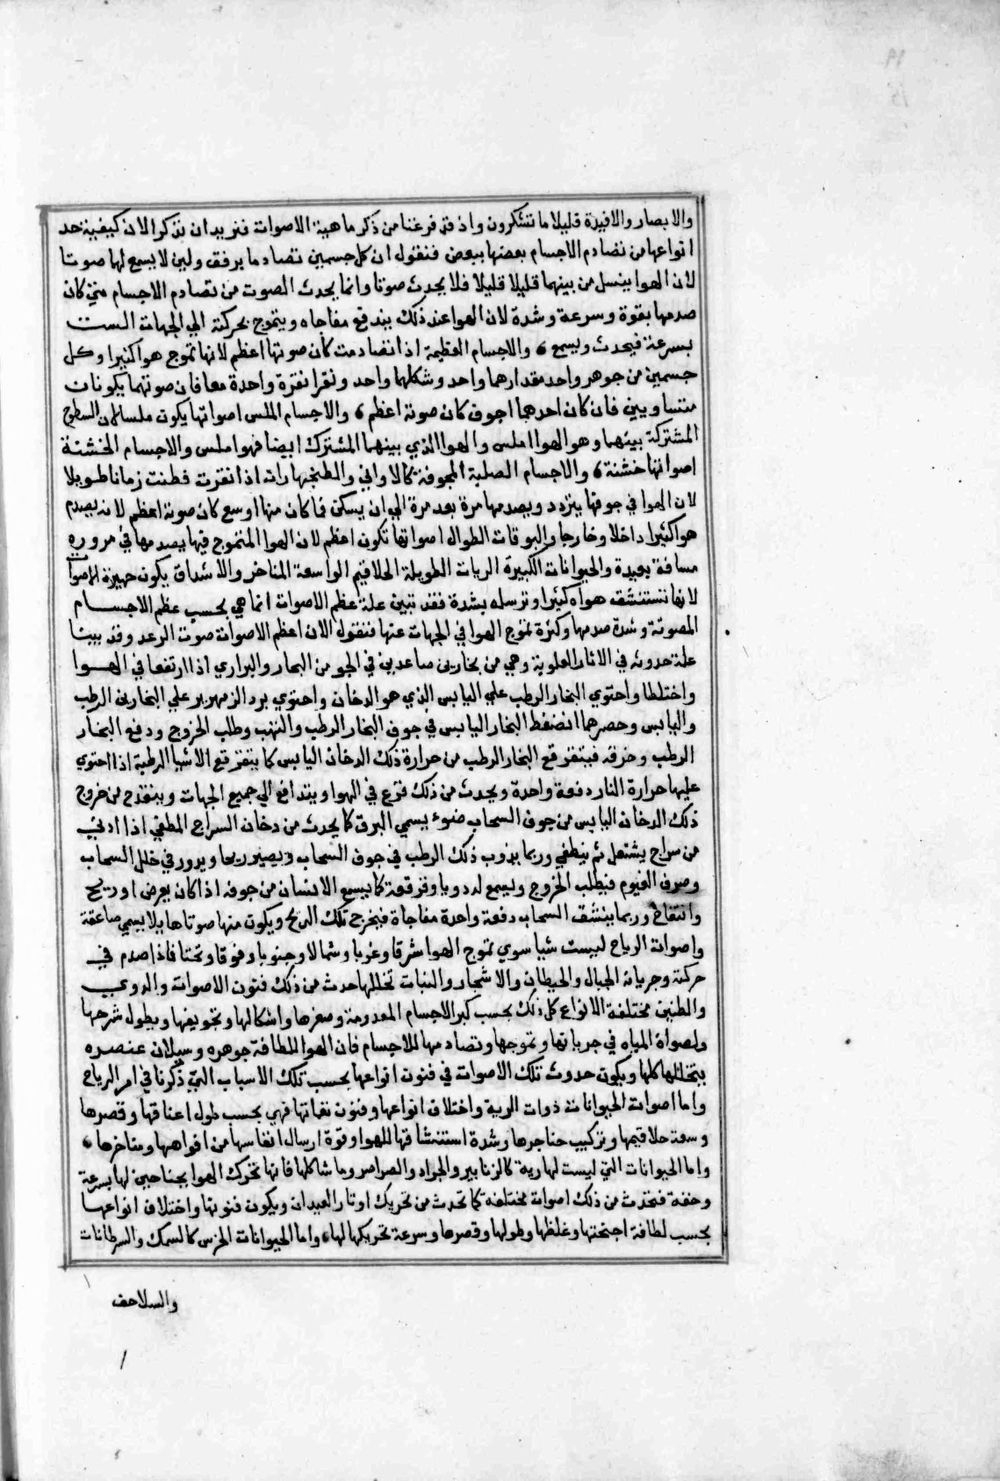 والابصار والافيدة قليلا ما تشكرون واذ قد فرغنا من ذكر ماهية الاصوات فنريد ان نذكر الان كيفية حد
انواعها من تصادم الاجسام بعضها ببعض فنقول ان كل جسمين تصادما برفق ولين لا يسمع لها صوتا
لان الهوا ينسل من بينهما قليلا قليلا فلا يحدث صوتا وانما يحدث الصوت من تصادم الاجسام متي كان
صدمها بقوة وسرعة وشدة لان الهوا عند ذلك يندفع مفاجاه ويتموج بحركته الي الجهات الست
بسرعة فيحدث ويسمع ، والاجسام العظيمة اذا تصادمت كان صوتها اعظم لانها تموج هوا كثيرا وكل
جسمين من جوهر واحد مقدارهما واحد وشكلهما واحد ونقرا نقرة واحدة معا فان صوتهما يكونان
متساويين فان كان احدهما اجوف كان صوته اعظم ، والاجسام الملس اصواتها يكون ملسا لان السطوح
المشتركة بينهما وهو الهوا املس والهوا الذي بينهما المشترك ايضا فهو املس والاجسام الخشنة
اصواتها خشنة ، والاجسام الصلبة المجوفة كالاواني والطنجهارات اذا نقرت فطنت زمانا طويلا
لان الهوا في جوفها يتردد ويصدمها مرة بعد مرة الي ان يسكن فما كان منها اوسع كان صوته اعظم لانه يصدم
هوا كثيرا داخلا وخارجا والبوقات الطوال اصواتها تكون اعظم لان الهوا المتموج فيها يصدمها في مروره
مسافة بعيدة والحيوانات الكبيرة الريات الطويلة الحلاقيم الواسعة المناخر والاشداق يكون جهيرة الاصوات
لانها تستنشق هواء كثيرا وترسله بشدة فقد تبين علة عظم الاصوات انما هي بحسب عظم الاجسام
المصوتة وشدة صدمها وكثرة تموج الهوا في الجهات عنها فنقول الان اعظم الاصوات صوت الرعد وقد بينا
علة حدوثه في الاثار العلوية وهي من بخارين صاعدين في الجو من البحار والبراري اذا ارتفعا في الهوا
واختلطا واحتوي البخار الرطب علي اليابس الذي هو الدخان واحتوي برد الزمهرير علي البخارين الرطب
واليابس وحصرهما انضغط البخار اليابس في جوف البخار الرطب والتهب وطلب الخروج ودفع البخار
الرطب وخرقه فيتفرقع البخار الرطب من حرارة ذلك الدخان اليابس كما يتفرقع الاشيا الرطبة اذا احتوي
عليها حرارة النار دفعة واحدة ويحدث من ذلك قرع في الهوا ويتدافع الي جميع الجهات وينقدح من خروج
ذلك الدخان اليابس من جوف السحاب ضوء يسمي البرق كما يحدث من دخان السراج المطفي اذا ادني
من سراج يشتعل ثم ينطفي وربما يذوب ذلك الرطب في جوف السحاب ويصير ريحا ويدور في خلل السحاب
وجوف الغيوم فيطلب الخروج ويسمع له دويا وقرقعة كما يسمع الانسان من جوفه اذا كان يعرض او ريح
وانتفاخ وربما ينشق السحاب دفعة واحدة مفاجاة فيخرج تلك الريح ويكون منها صوتا هايلا يسمي صاعقة
واصوات الرياح ليست شيا سوي تموج الهوا شرقا وغربا وشمالا وجنوبا وفوقا وتحتا فاذا صدم في
حركته وجريانه الجبال والحيطان والاشجار والنبات تخللها حدث من ذلك فنون الاصوات والدوي
والطنين مختلفة الانواع كل ذلك بحسب كبر الاجسام المصدومة وصغرها واشكالها وتجويفها ويطول شرحها
واصوات المياه في جريانها وتموجها وتصادمها للاجسام فان الهوا للطافة جوهره وسيلان عنصره
يتخللها كلها ويكون حدوث تلك الاصوات في فنون انواعها بحسب تلك الاسباب التي ذكرنا في امر الرياح
واما اصوات الحيوانات ذوات الرية واختلاف انواعها وفنون نغماتها فهي بحسب طول اعناقها وقصرها
وسعة حلاقيمها وتركيب حناجرها وشدة استنشاقها للهوا وقوة ارسال انفاسها من افواهها ومناخرها ،
واما الحيوانات التي ليست لها رية كالزنابير والجراد والصراصر وما شاكلها فانها تحرك الهوا بجناحين لها بسرعة
وخفة فيحدث من ذلك اصوات مختلفة كما تحدث من تحريك اوتار العيدان ويكون فنونها واختلاف انواعها
بحسب لطافة اجنحتها وغلظها وطولها وقصرها وسرعة تحريكها لها ، واما الحيوانات الخرس كالسمك والسرطانات
والسلاحف